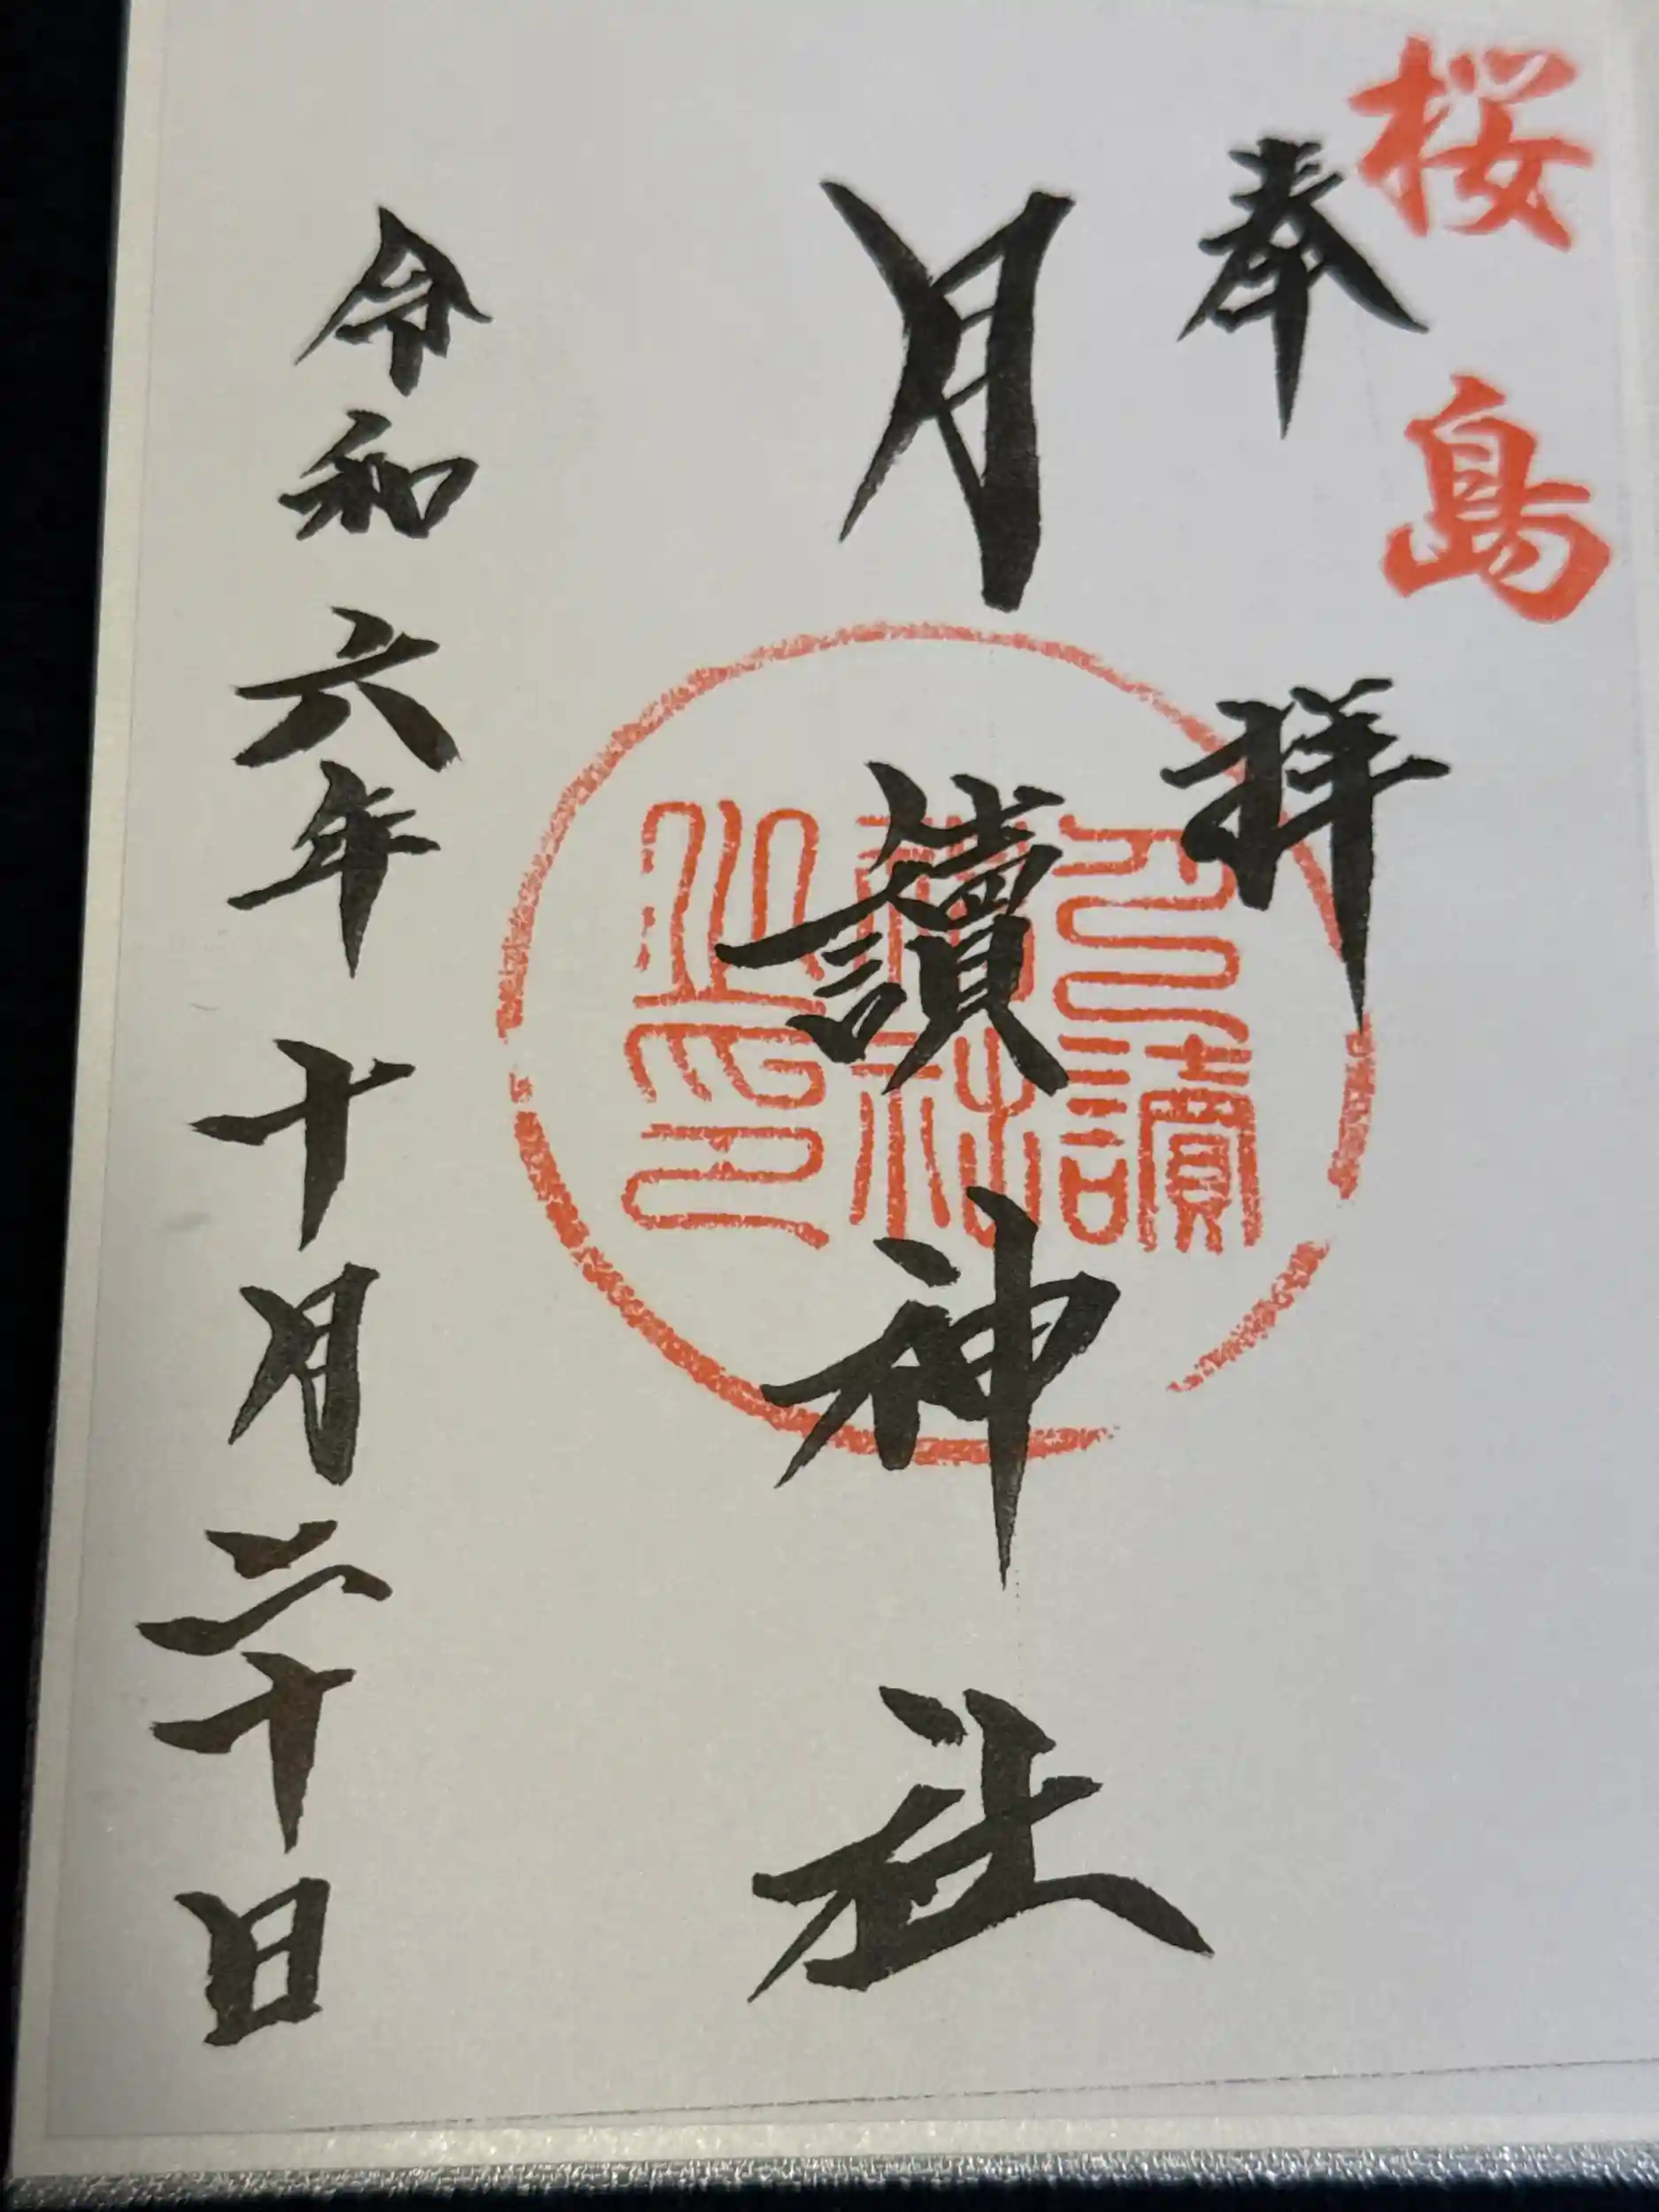 桜島
奉拝
月讀神社
月讀神社之印
令和六年十月二十日